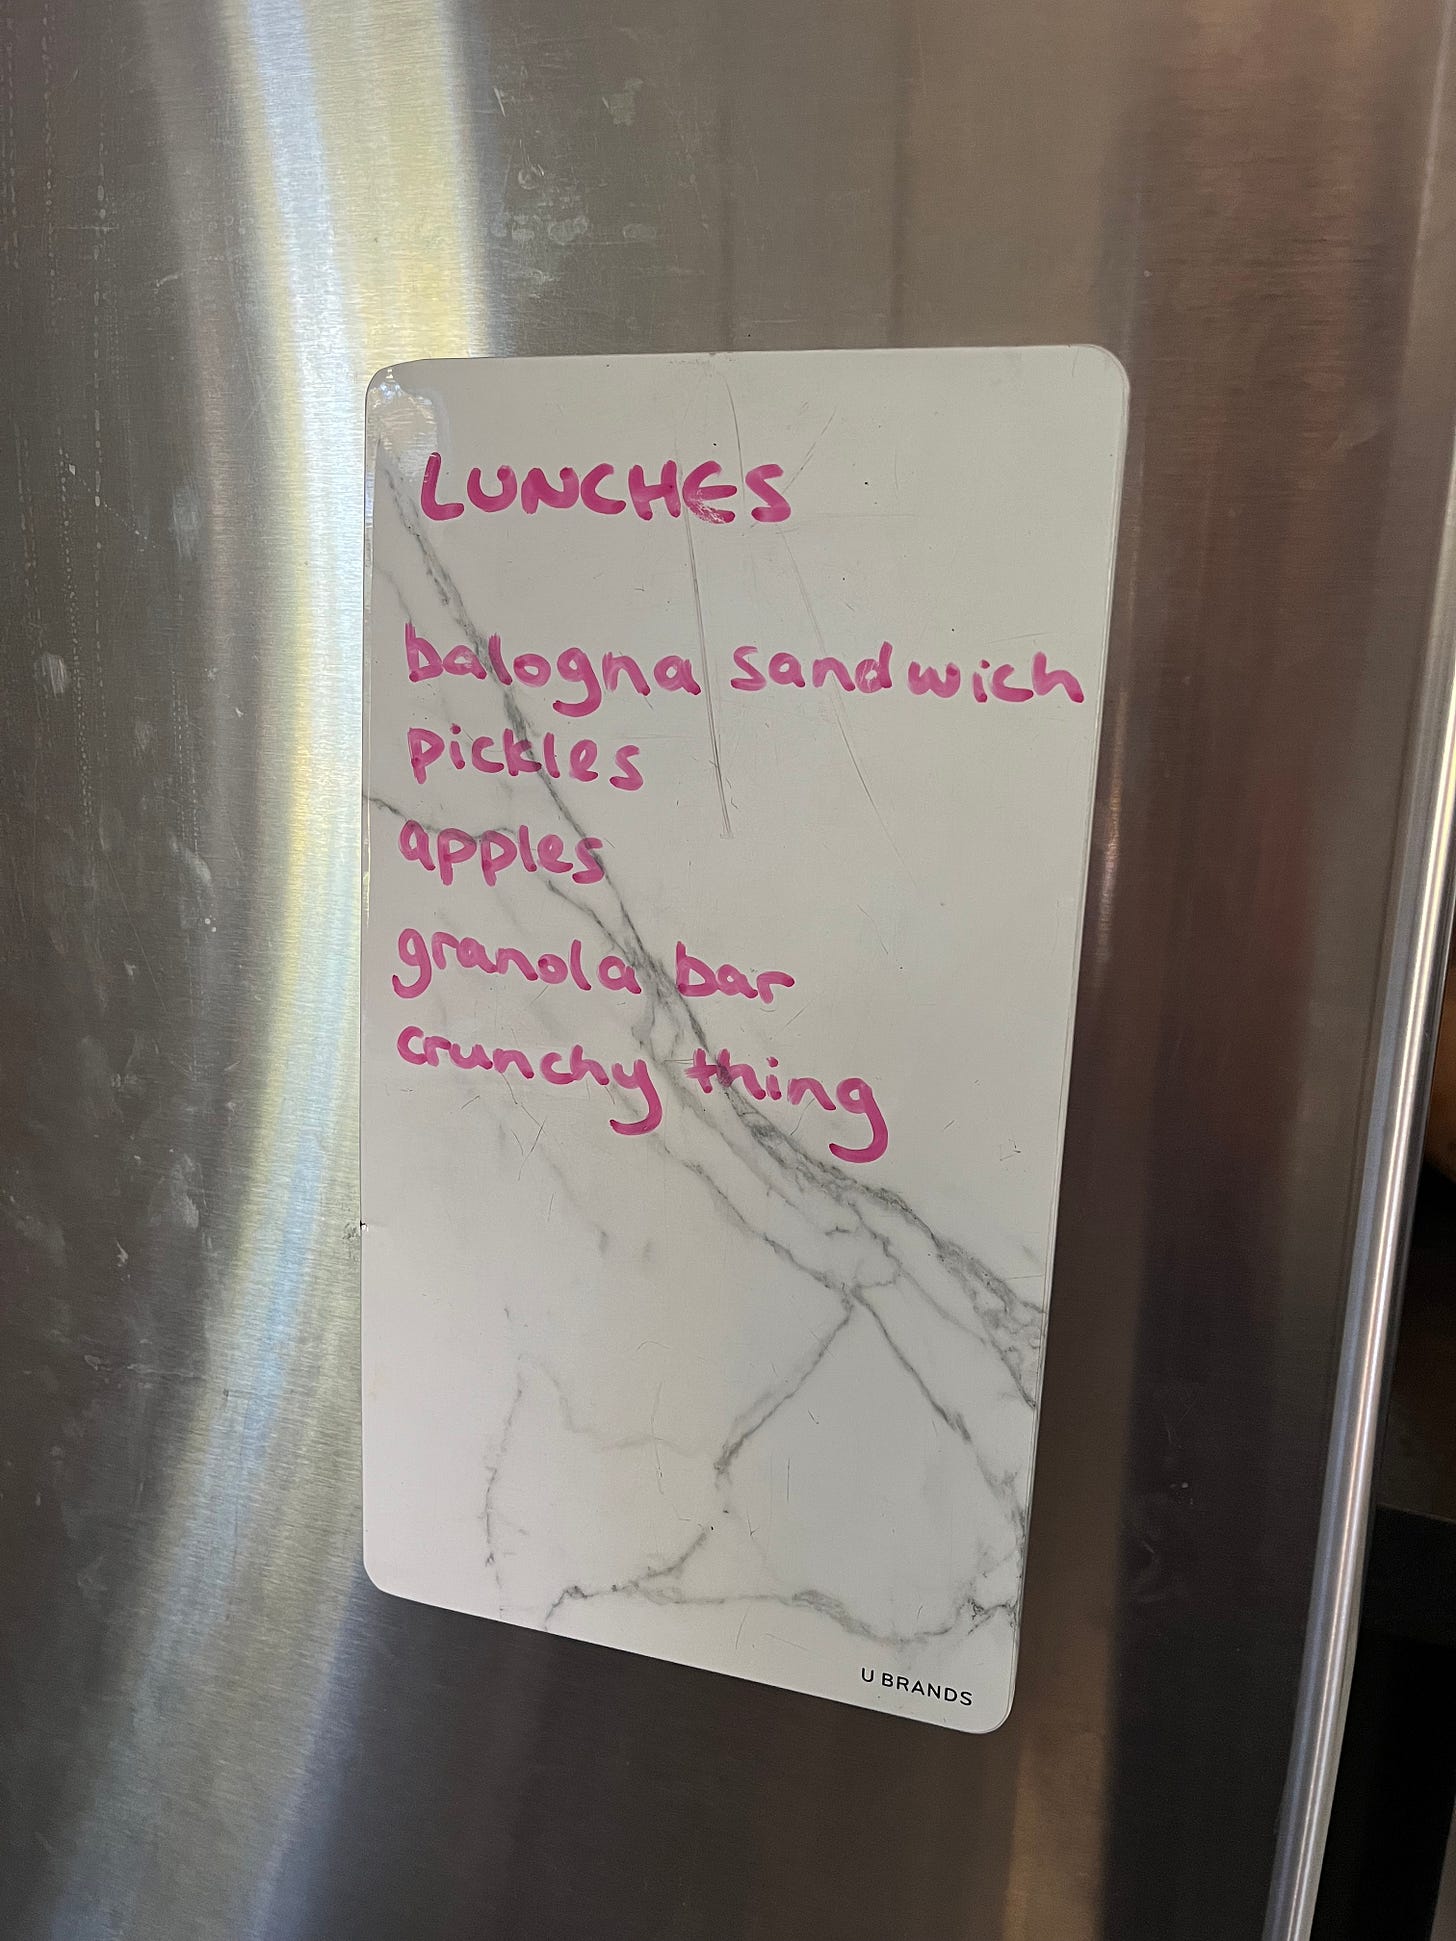 LUNCHES
balogna sandwich
pickles
apples
granola bar
crunchy thing
U BRANDS